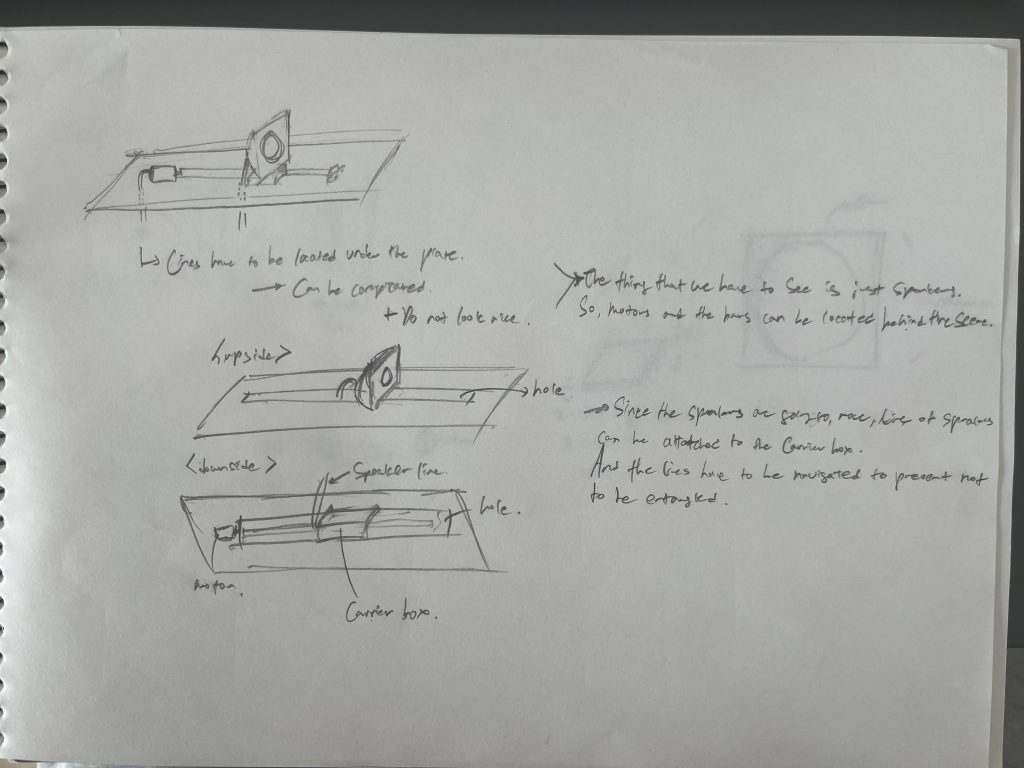 ↳ Lines have to be located under the plate.
→ Can be complicated.
+ Do not look nice.
<upside>
hole
<downside>
Speaker line.
hole.
motor.
Carrier box.
The thing that we have to see is just speakers.
So, motors and the bars can be located behind the scene.
→ Since the speakers are going to move, lines of speakers
can be attatched to the carrier box.
And the lines have to be navigated to prevent not
to be entangled.